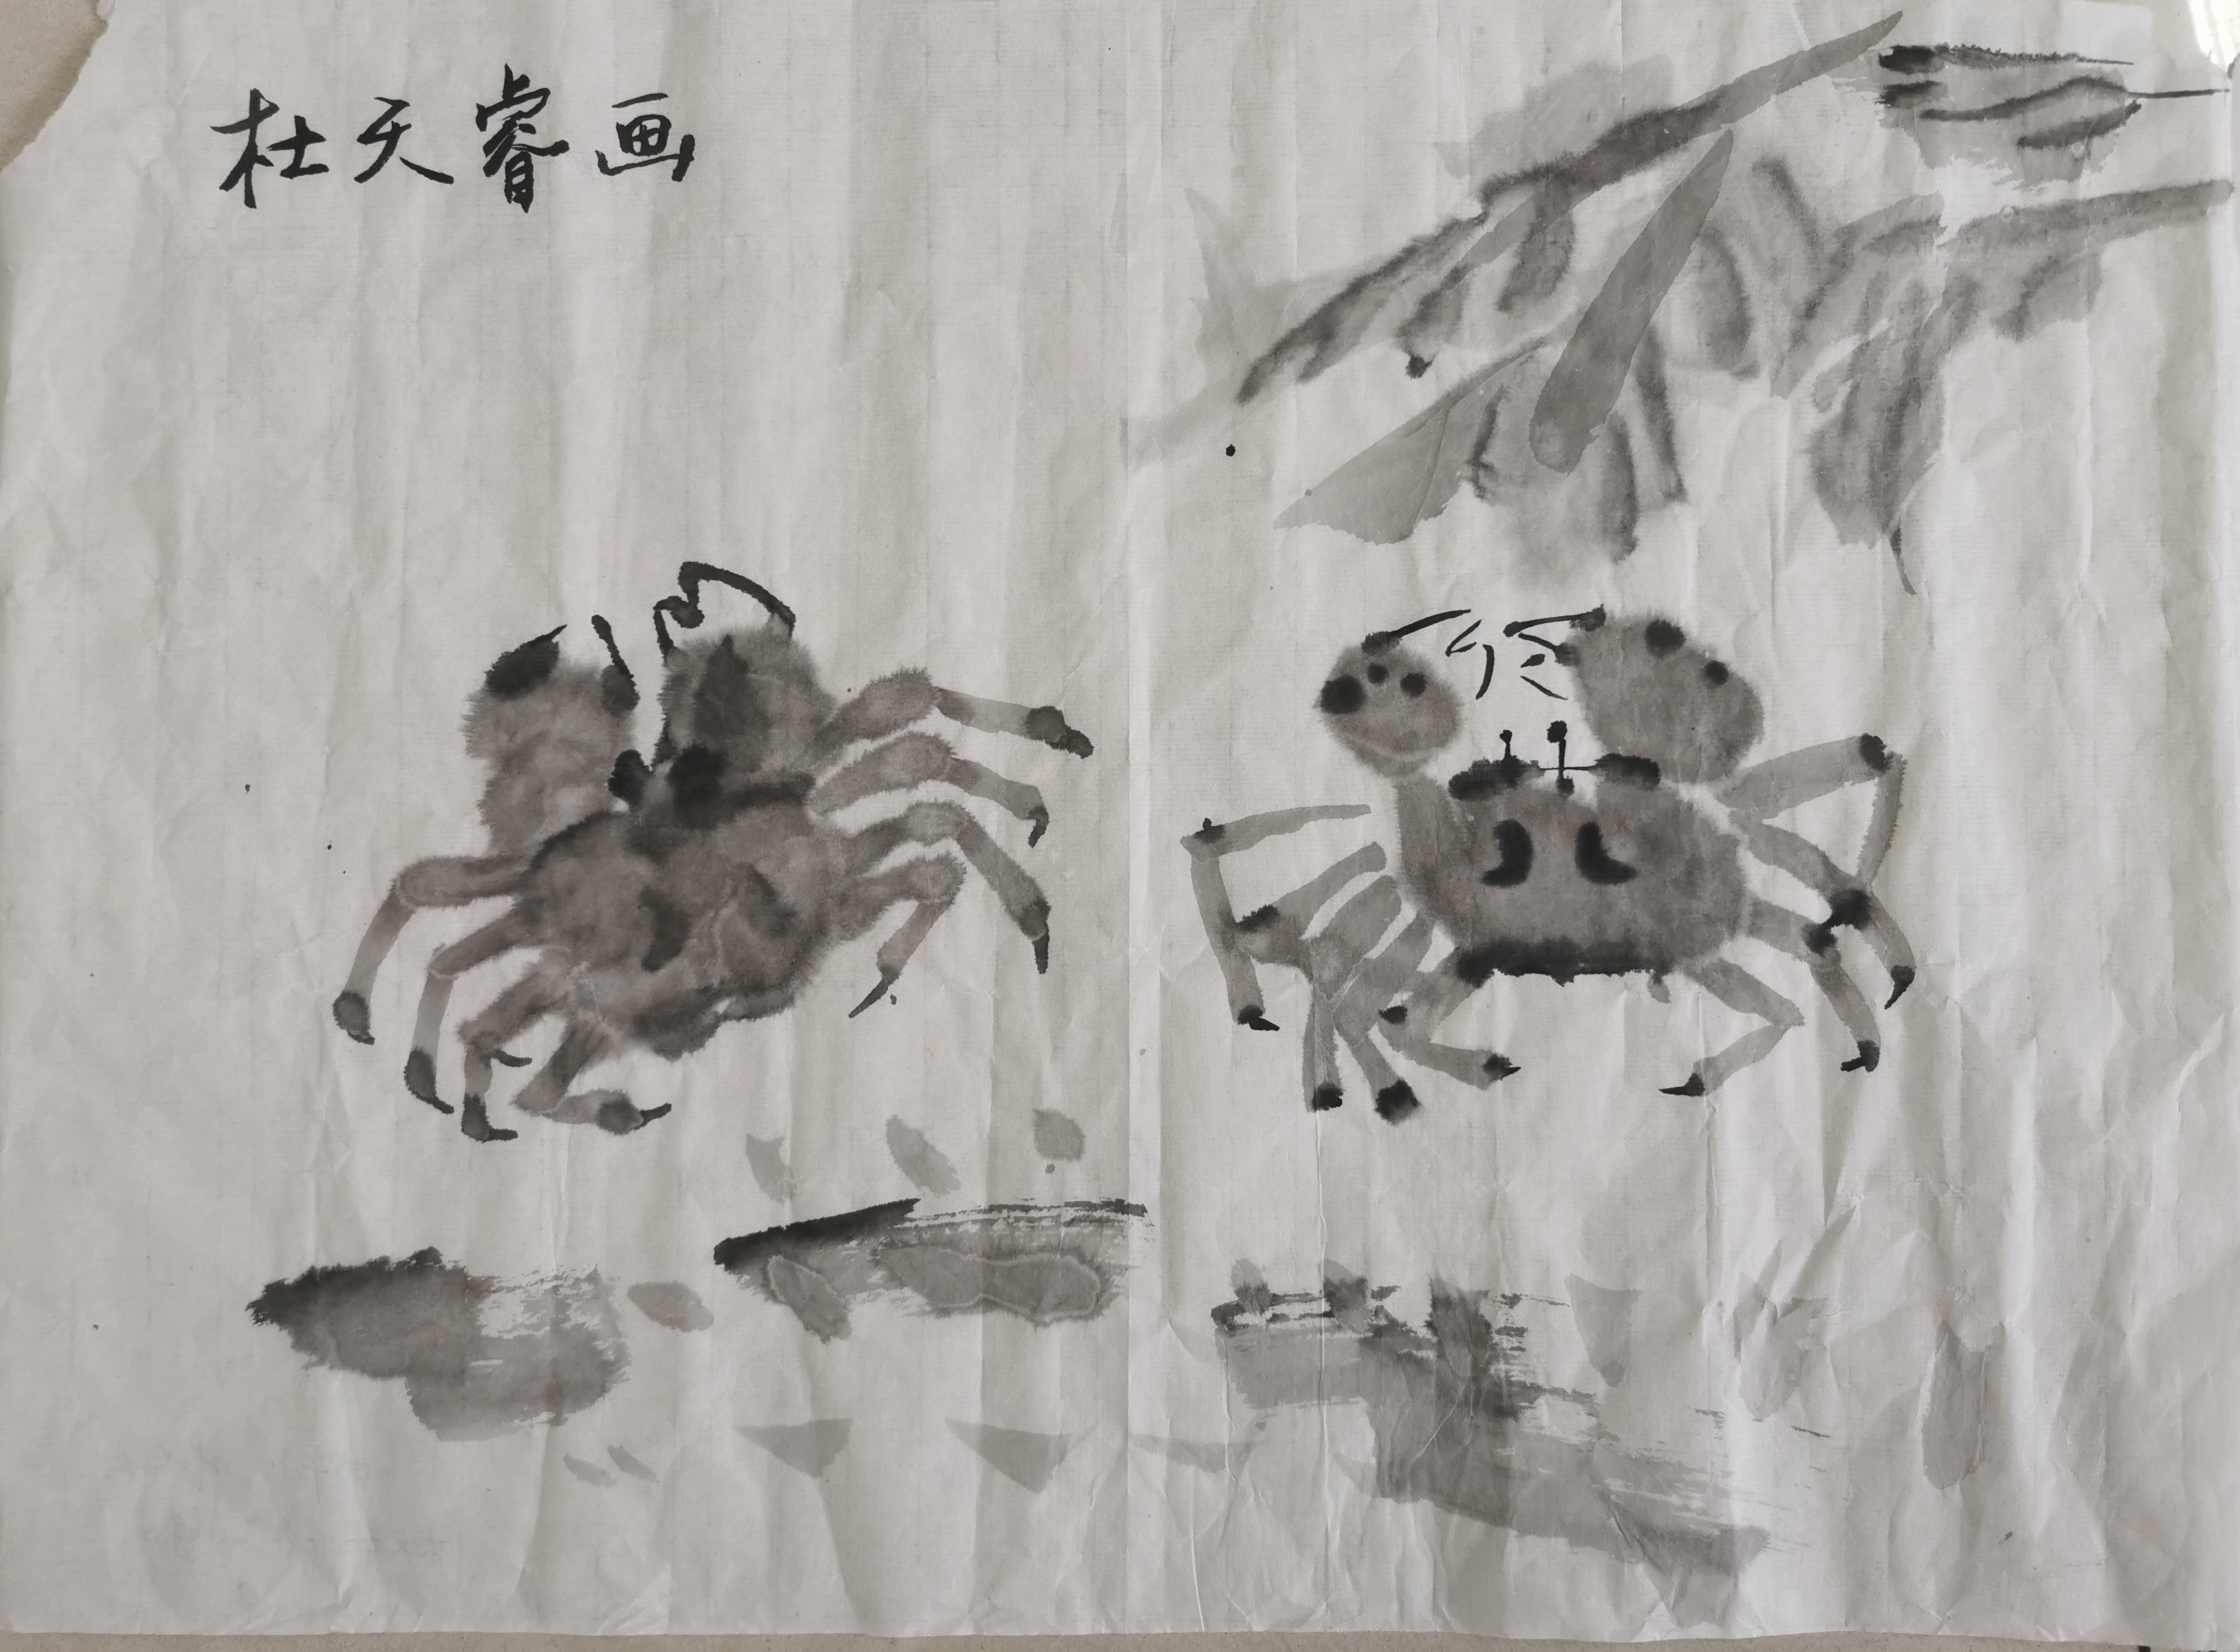 杜天睿画